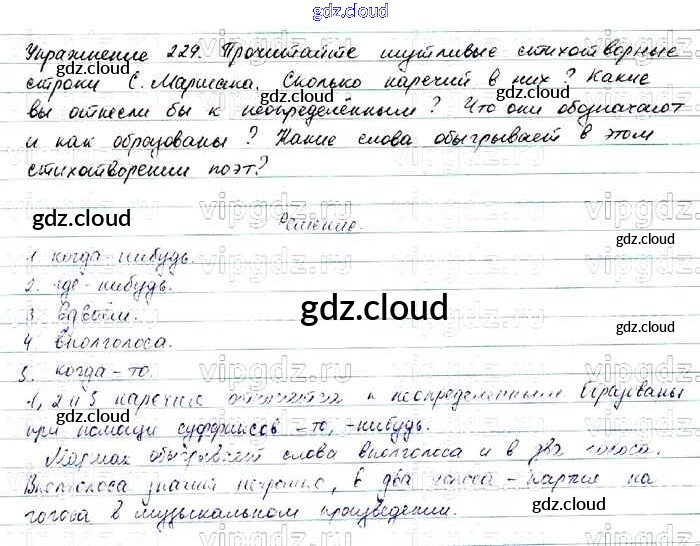 gdz.cloud
Упражнение 229. Прочитайте шутливые стихотворные
строки С. Маршака. Сколько наречий в них? Какие
вы отнесли бы к неопределённым? Что они обозначают
и как образованы? Какие слова обыгрывает в этом
стихотворении поэт?
gdz.cloud
gdz.cloud
gdz.cloud
Решение.
1. когда-нибудь.
2. где-нибудь.
3. вдвоём.
4. вполголоса.
5. когда-то.
1, 2 и 5 наречие относятся к неопределенным образованы
при помощи суффиксов -то, -нибудь.
Маршак обыгрывает слова вполголоса и в два голоса.
Вполголоса значит негромко, в два голоса - партия на
голоса в музыкальном произведении.
gdz.cloud
gdz.cloud
gdz.cloud
gdz.cloud
gdz.cloud
gdz.cloud
gdz.cloud
gdz.cloud
gdz.cloud
vipgdz.ru